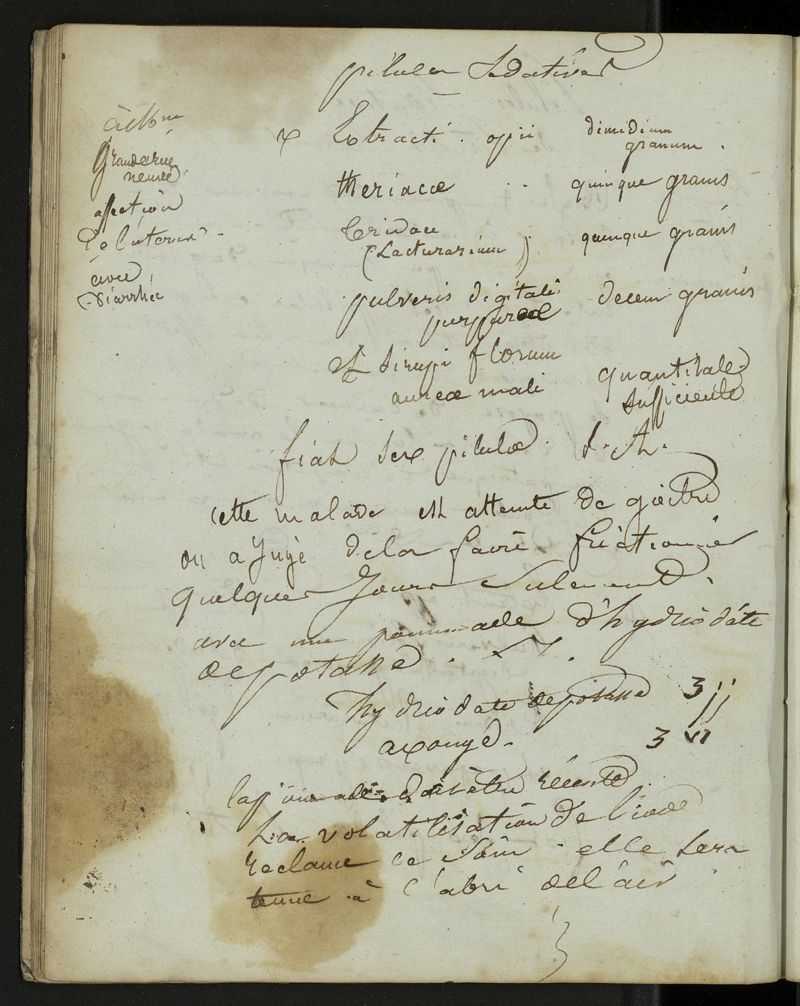 pilules Sedatives
à Mme
Granderue
nevrée
affection
de l'uterus
avec
Diarrhée
Extracti . opii dimidium
granum .
theriacæ .. quinque granis
Tridace quinque granis
(Lactucarium)
pulveris digitali decem granis
purpureæ
et sirupi florum quantitate
aureæ mali sufficiente
fiat sex pilulæ S. A.
cette malade est atteinte de goëitre
on a Jugé de la faire frictionner
quelques Jours Seulement.
avec une pommade d'hydriodate
de potasse .
hydriodate de potasse ʒ jj
axonge . ʒ vi
la pommade doit être récente
La volatilisation de l'iode
reclame ce soin . elle sera
tenue à l'abri de l'air .